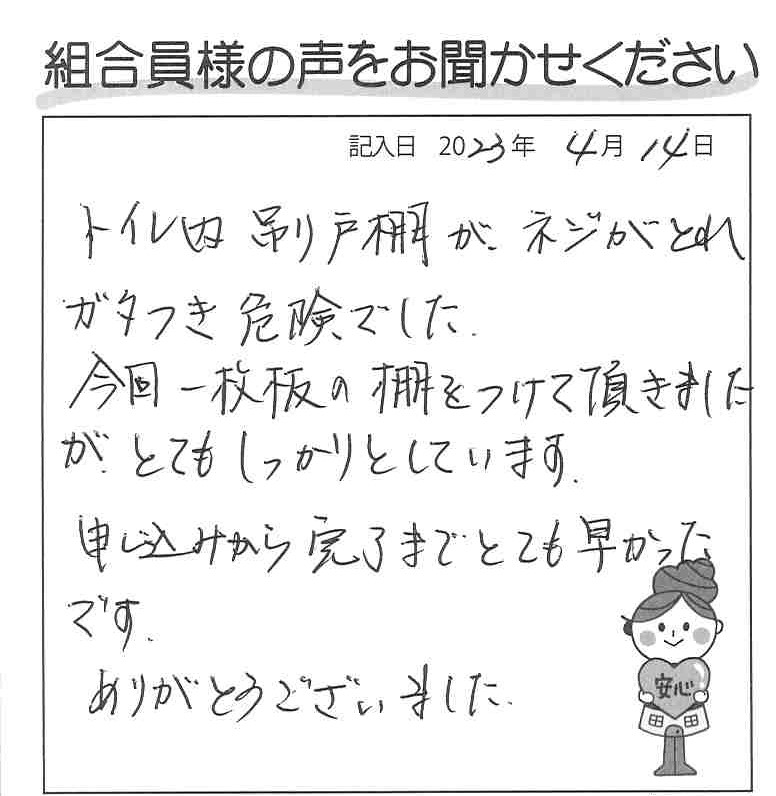 組合員様の声をお聞かせください
記入日 2023年 4月 14日
トイレ内 吊り戸棚が、ネジがとれ
ガタつき 危険でした.
今回 一枚板の 棚をつけて頂きました
が、とてもしっかりとしています.
申し込みから 完了までとても早かった
です.
ありがとうございました.
安心